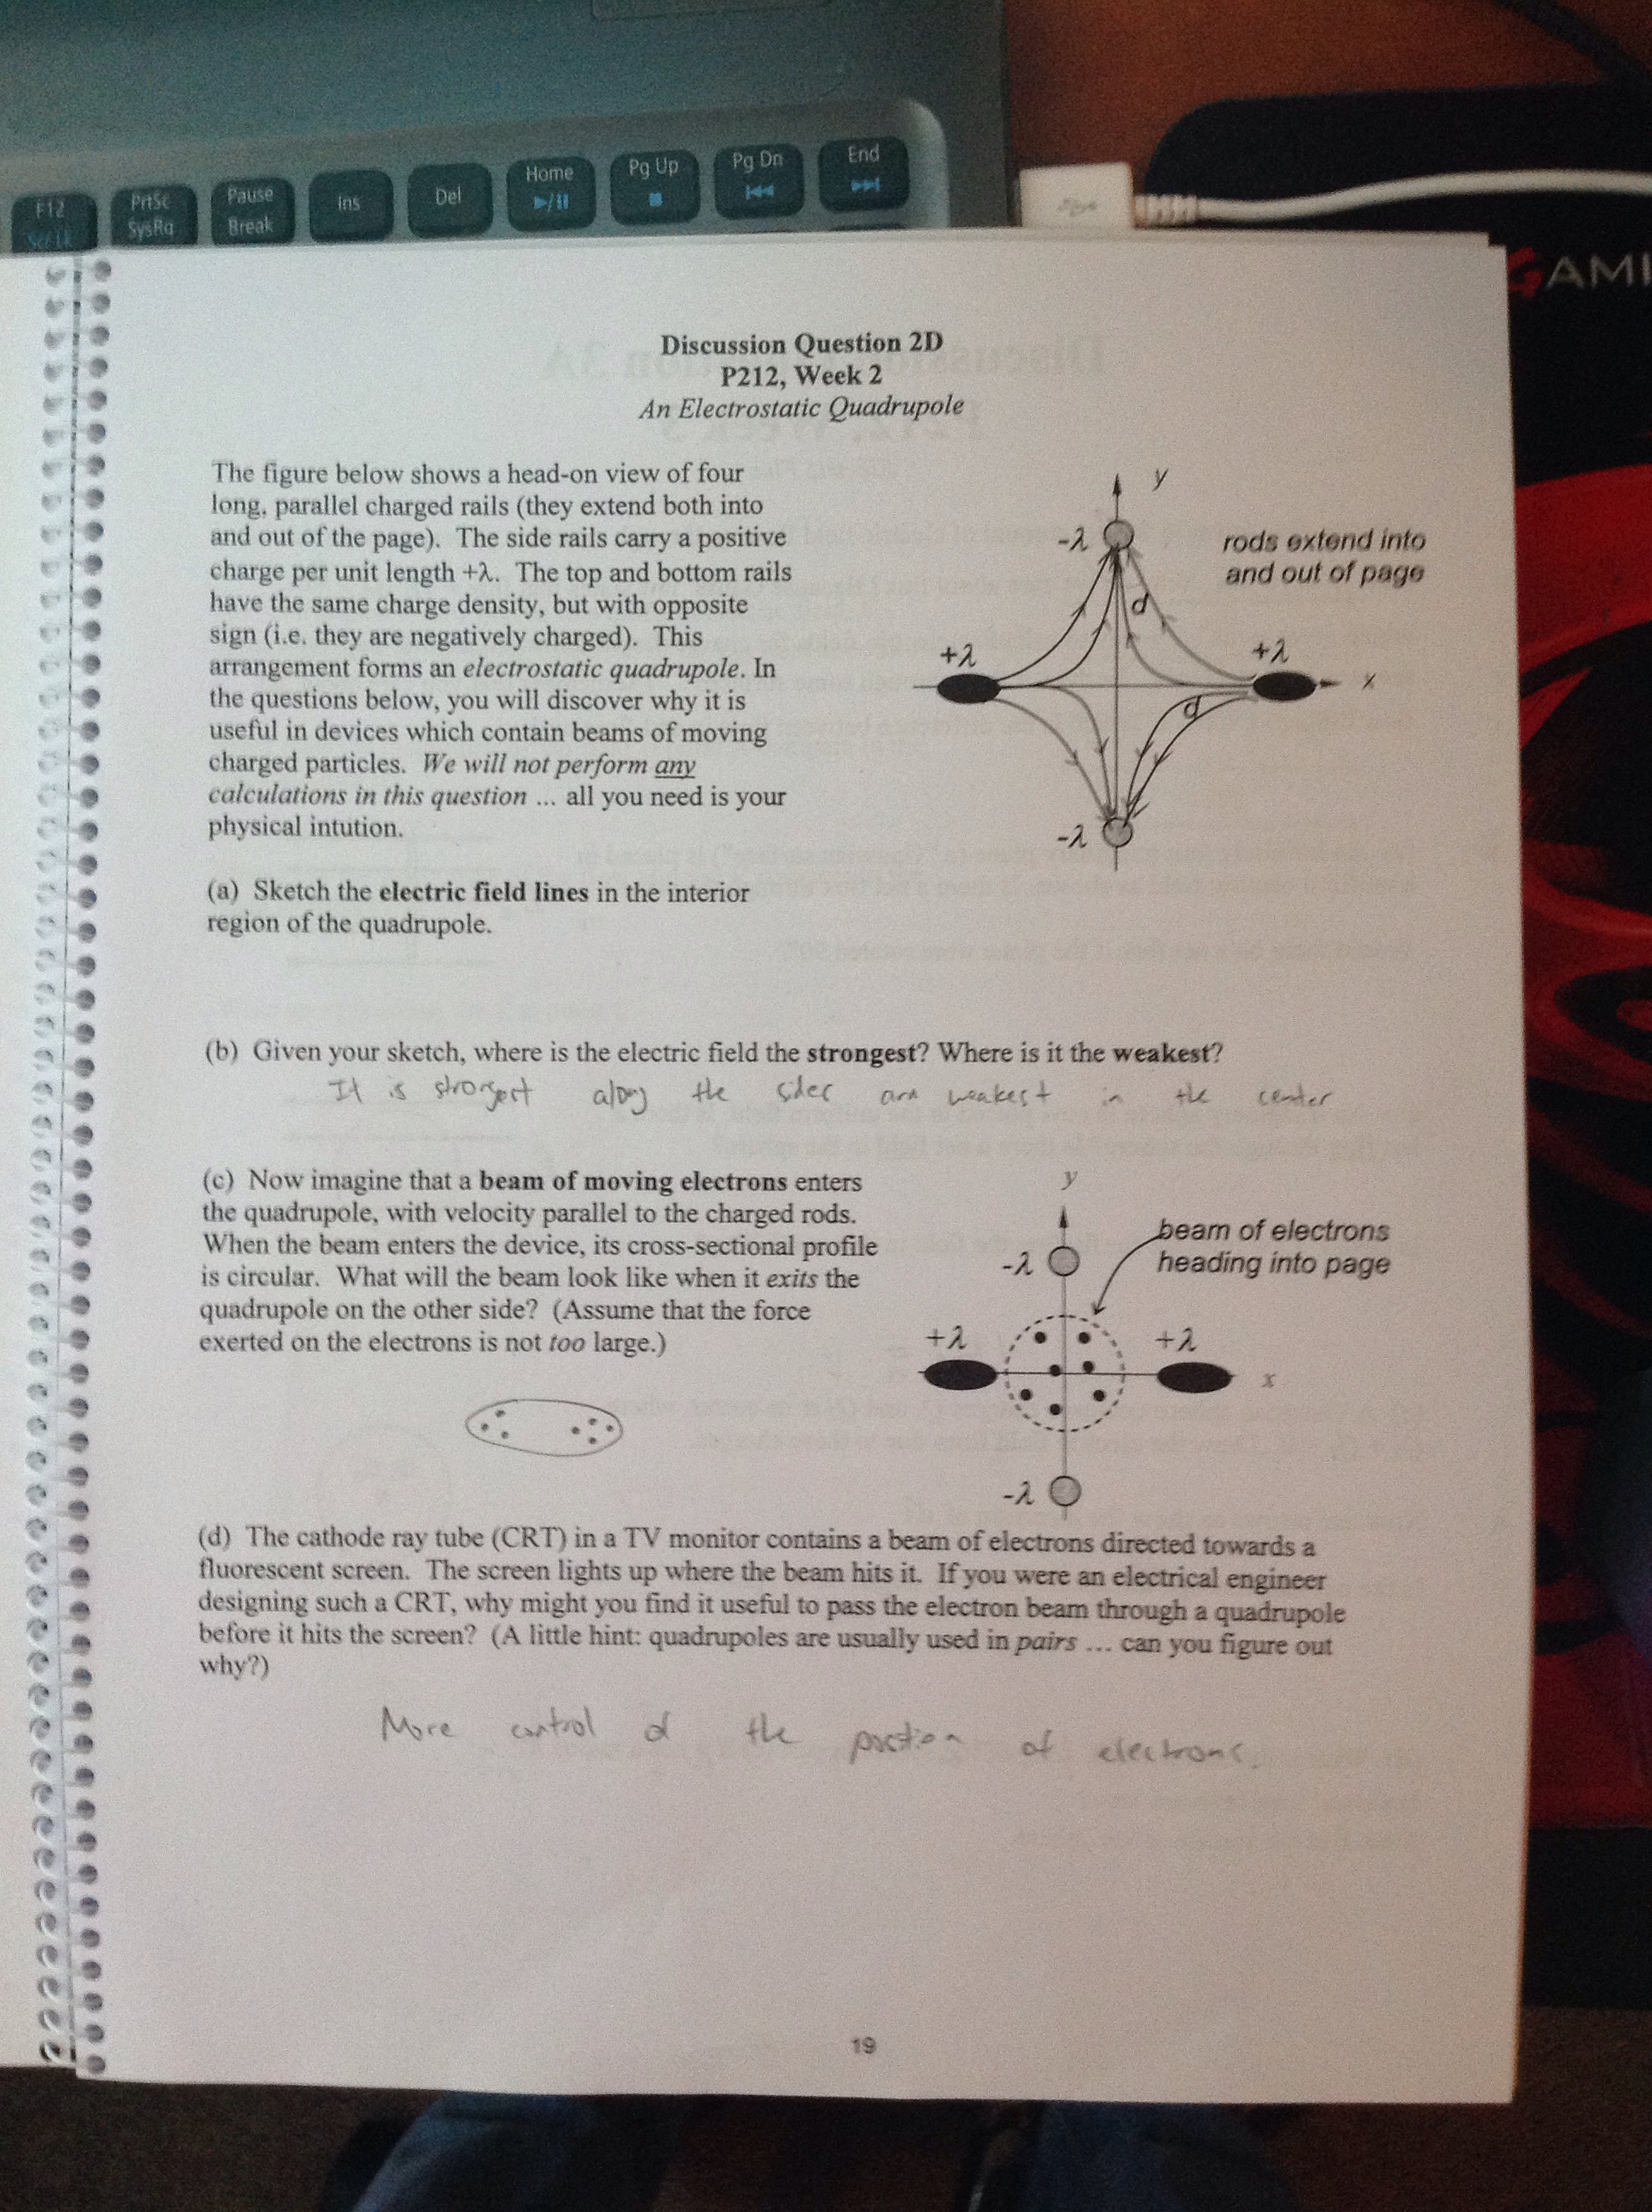 F12
Scr Lk
PrtSc
SysRq
Pause
Break
Ins
Del
Home
Pg Up
Pg Dn
End
GAMI
Discussion Question 2D
P212, Week 2
An Electrostatic Quadrupole
The figure below shows a head-on view of four
long, parallel charged rails (they extend both into
and out of the page). The side rails carry a positive
charge per unit length +λ. The top and bottom rails
have the same charge density, but with opposite
sign (i.e. they are negatively charged). This
arrangement forms an electrostatic quadrupole. In
the questions below, you will discover why it is
useful in devices which contain beams of moving
charged particles. We will not perform any
calculations in this question ... all you need is your
physical intution.
y
-λ
rods extend into
and out of page
d
+λ
+λ
x
d
-λ
(a) Sketch the electric field lines in the interior
region of the quadrupole.
(b) Given your sketch, where is the electric field the strongest? Where is it the weakest?
It is strongest along the sides and weakest in the center
(c) Now imagine that a beam of moving electrons enters
the quadrupole, with velocity parallel to the charged rods.
When the beam enters the device, its cross-sectional profile
is circular. What will the beam look like when it exits the
quadrupole on the other side? (Assume that the force
exerted on the electrons is not too large.)
y
beam of electrons
heading into page
-λ
+λ
+λ
x
-λ
(d) The cathode ray tube (CRT) in a TV monitor contains a beam of electrons directed towards a
fluorescent screen. The screen lights up where the beam hits it. If you were an electrical engineer
designing such a CRT, why might you find it useful to pass the electron beam through a quadrupole
before it hits the screen? (A little hint: quadrupoles are usually used in pairs ... can you figure out
why?)
More control of the position of electrons.
19